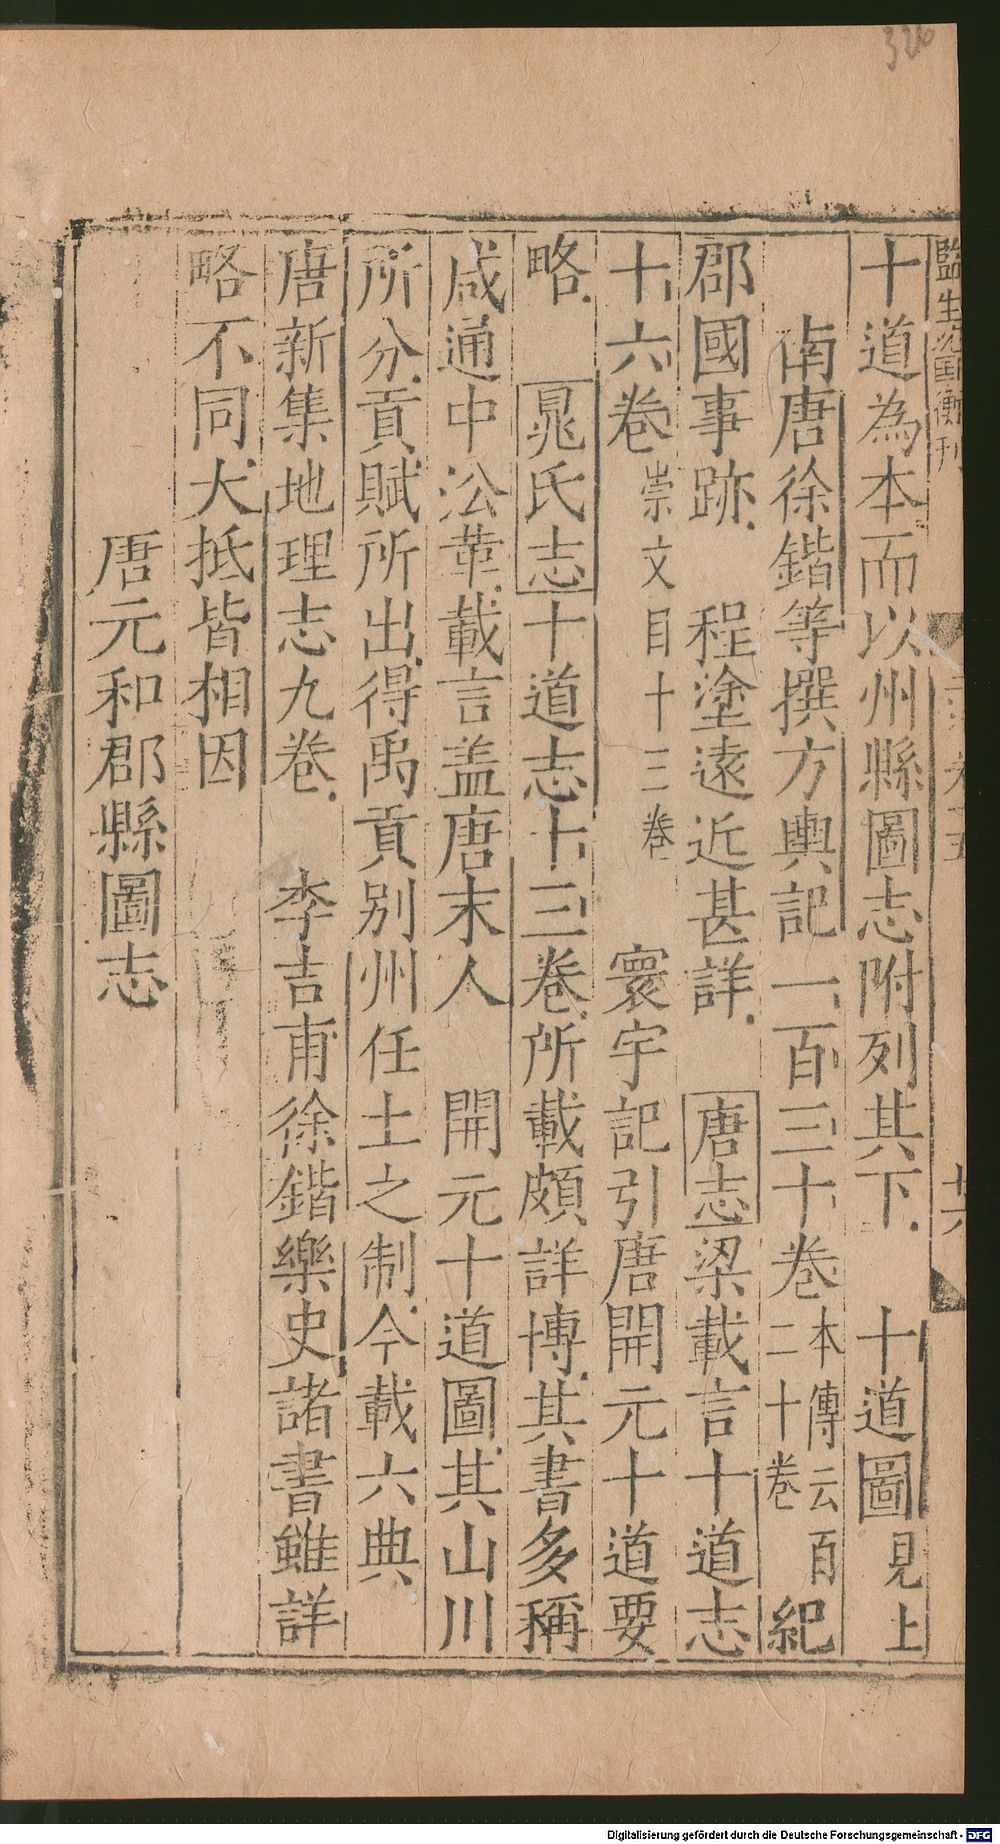 326
監生沈 衡刊
卷十五
十六
十道為本而以州縣圖志附列其下 十道圖見上
南唐徐鍇等撰方輿記一百三十卷本傳云百二十卷 紀
郡國事跡 程塗遠近甚詳 唐志梁載言十道志
十六卷崇文目十三卷 寰宇記引唐開元十道要
略 晁氏志十道志十三卷所載頗詳博其書多稱
咸通中沿革載言盖唐末人 開元十道圖其山川
所分貢賦所出得禹貢別州任土之制今載六典
唐新集地理志九卷 李吉甫徐鍇樂史諸書雖詳
略不同大抵皆相因
唐元和郡縣圖志
Digitalisierung gefördert durch die Deutsche Forschungsgemeinschaft - DFG